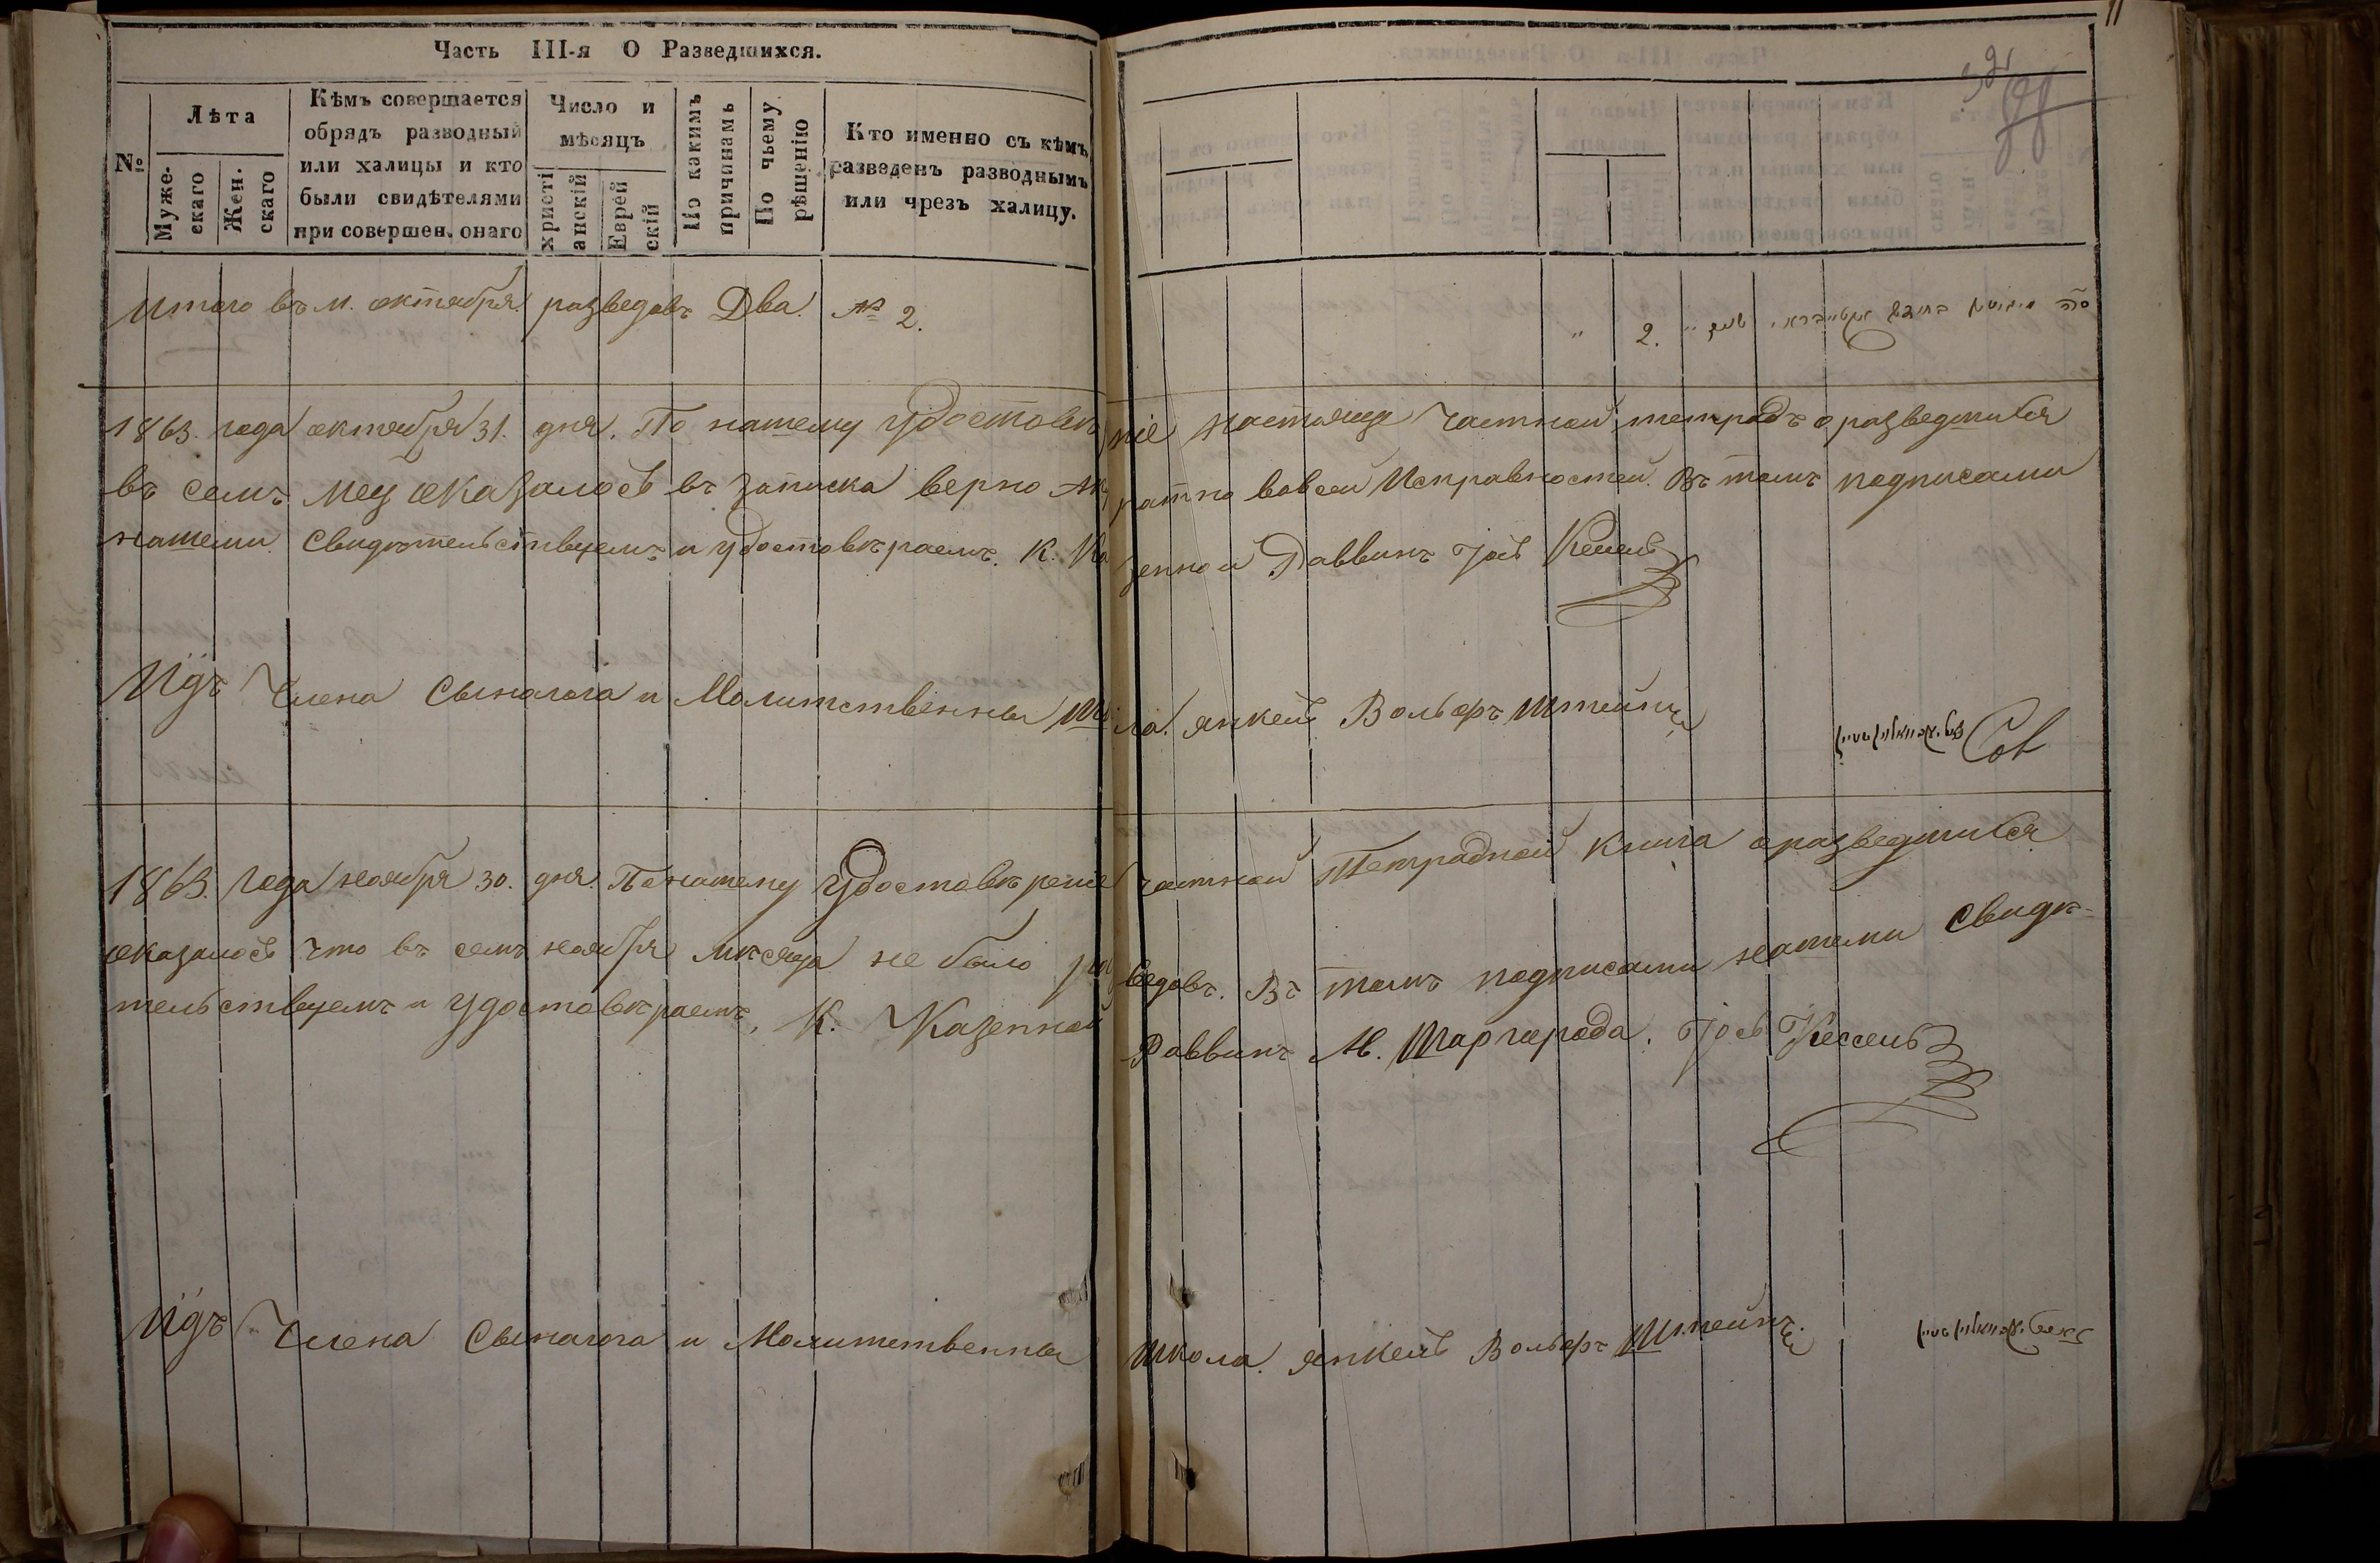 Часть III-я О Разведшихся.
№
Лѣта
Муже-
скаго
Жен.
скаго
Кѣмъ совершается
обрядъ разводный
или халицы и кто
были свидѣтелями
при совершен. онаго
Число и
мѣсяцъ
христі
анскій
Еврей
скій
По какимъ
причинамъ
По чьему
рѣшенію
Кто именно съ кѣмъ
разведенъ разводнымъ
или чрезъ халицу.
11
Итого въ м. октября разведовъ Два. № 2.
" 2. "
1863. года октября 31. дня. По нашему удостовѣреніе настояще частной тетрадъ о разведшихся
въ семъ мец оказалось въ записка верно Акуратно вовсеи Исправностей. Въ томъ подписами
нашеми Свидѣтельствуемъ и удостовѣраемъ. К. Казенной Раввинъ Іось Кесель
Ийдъ Члена Сынагога и Молитственны школа. янкель Вольфъ Штейнъ
1863. Года ноября 30. дня. По нашему Удостовѣрение частной Тетрадной Книга о разведшихся
оказалось что въ семъ ноября мѣсяца не было разведовъ. Въ томъ подписами нашеми Свидѣ-
тельствуемъ и удостовѣраемъ, К. Казенной Раввинъ М. Шаргорода. Іось Кессель
Ийдъ Члена Сынагога и Молитственны школа. янкель Вольфъ Штейнъ